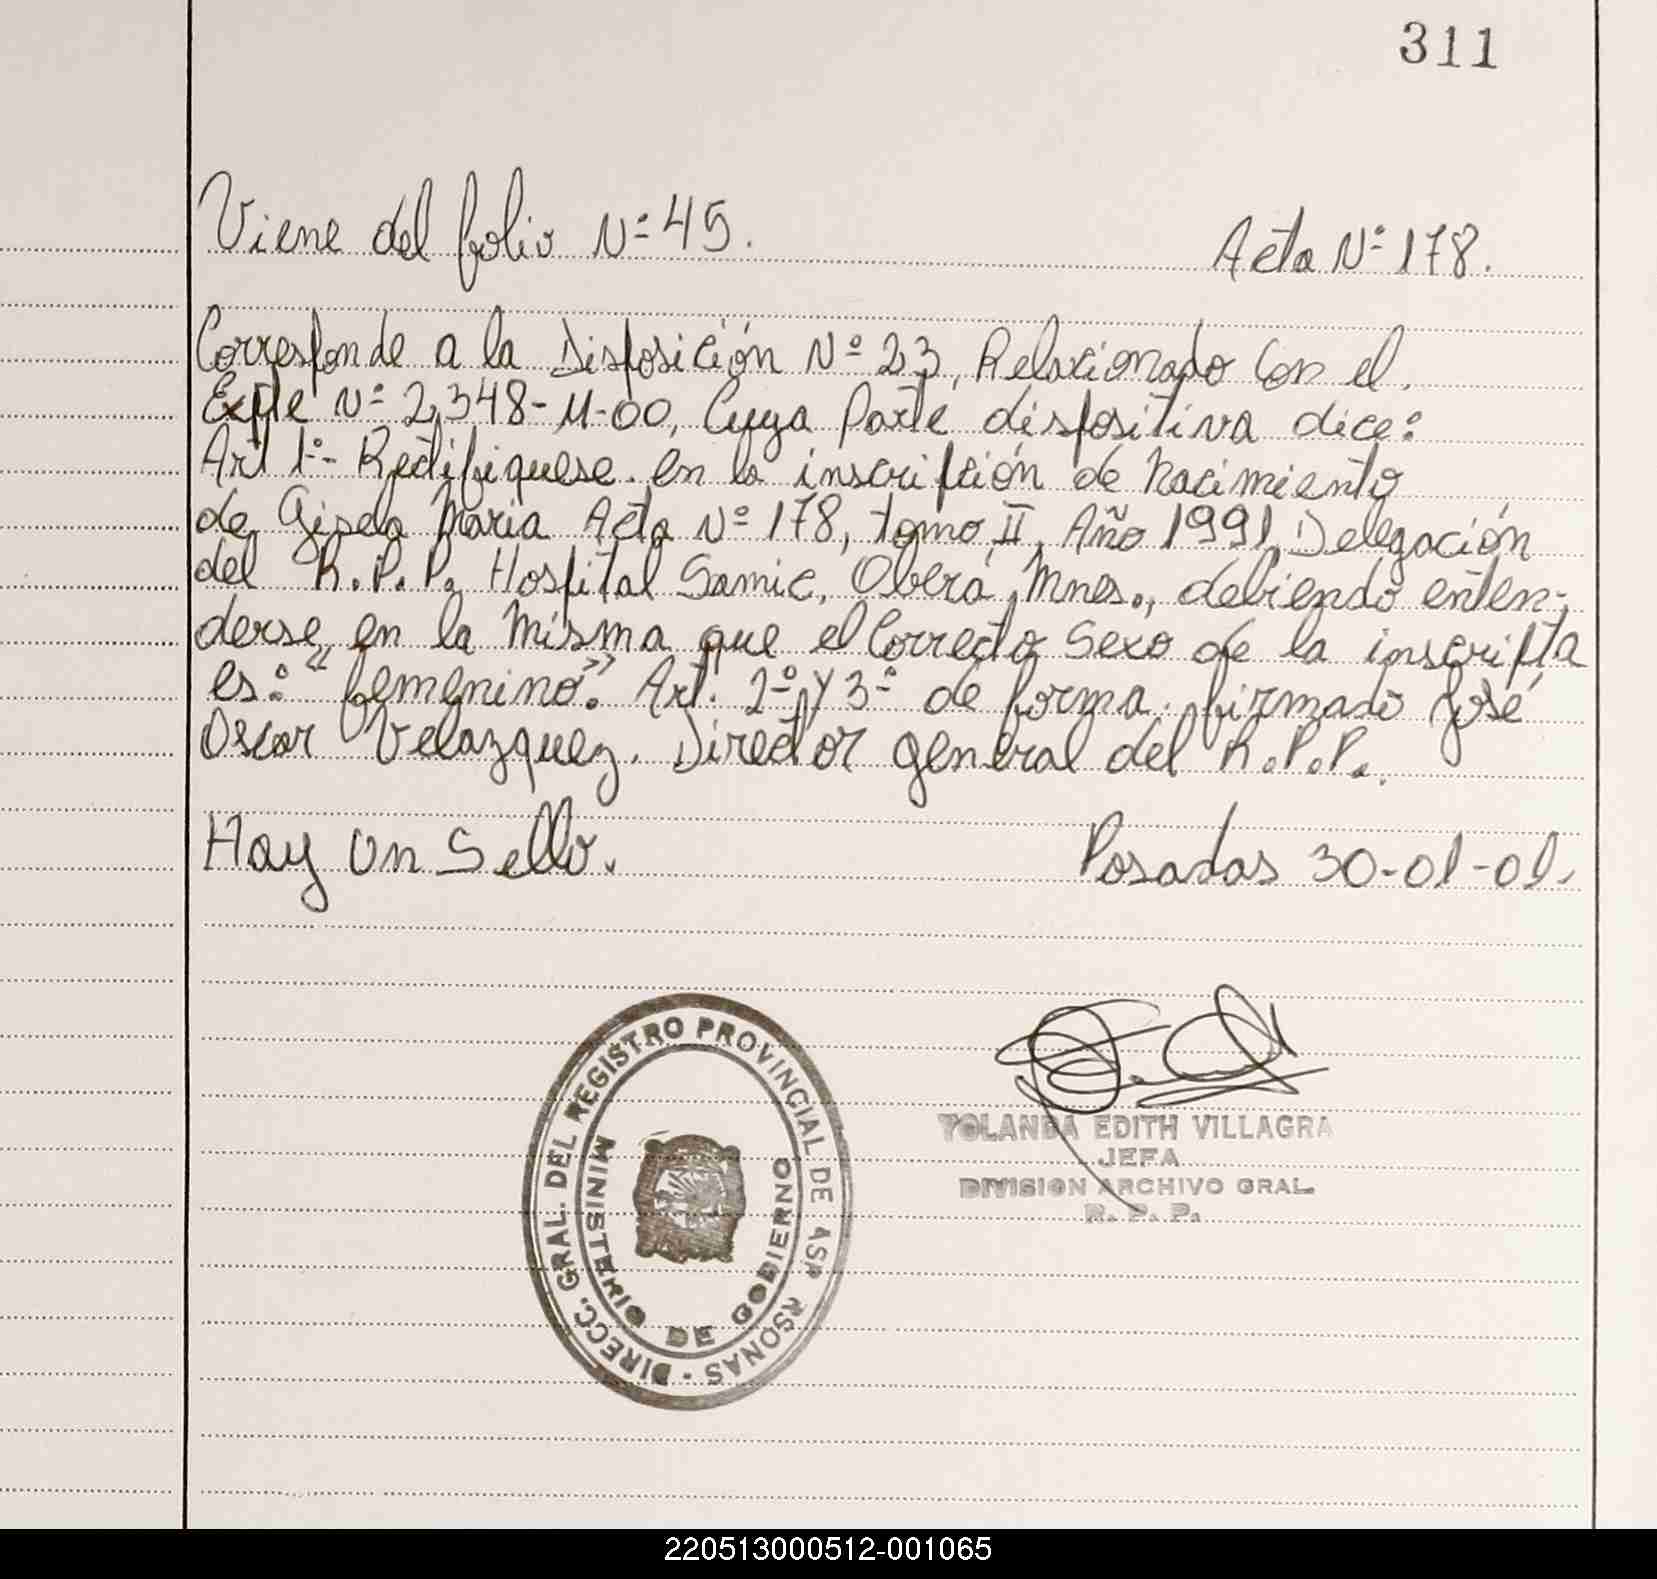 311
Viene del folio Nº 45.
Acta Nº 178.
Corresponde a la Disposición Nº 23, Relacionado Con el.
Expte Nº 2348-M-00, Cuya Parte dispositiva dice:
Art 1º- Rectifiquese en la inscripción de Nacimiento
de Gisela Maria Acta Nº 178, tomo II, Año 1991, Delegación
del R.P.P. Hospital Samic, Oberá, Mnes., debiendo enten-
derse en la Misma que el Correcto Sexo de la inscripta
es: "femenino". Art. 2º y 3º de forma. firmado José
Oscar Velazquez. Director general del R.P.P.
Hay un Sello.
Posadas 30-01-01.
DIRECC. GRAL. DEL REGISTRO PROVINCIAL DE
RSONAS
MINISTERIO DE GOBIERNO
YOLANDA EDITH VILLAGRA
JEFA
DIVISION ARCHIVO GRAL.
R. P. P.
220513000512-001065